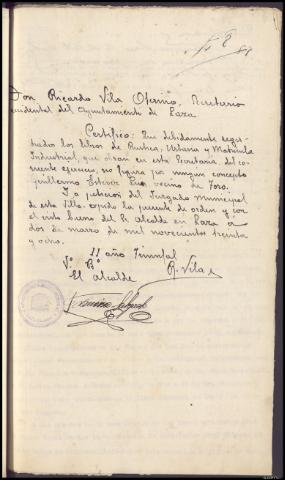 Don Ricardo Vila Oterino, Secretario
accidental del Ayuntamiento de Laza
Certifico: Que debidamente regis-
trados los libros de Rústica, Urbana y Matrícula
Industrial, que obran en esta Secretaría del co-
rriente ejercicio, no figura por ningún concepto
Guillermo Estevez vecino de Toro.
Y a petición del Juzgado Municipal
de esta Villa, expido la presente de orden y con
el visto bueno del Sr. Alcalde en Laza a
dos de marzo de mil novecientos treinta
y ocho.
II año Triunfal
Vº Bº
El Alcalde
R. Vila